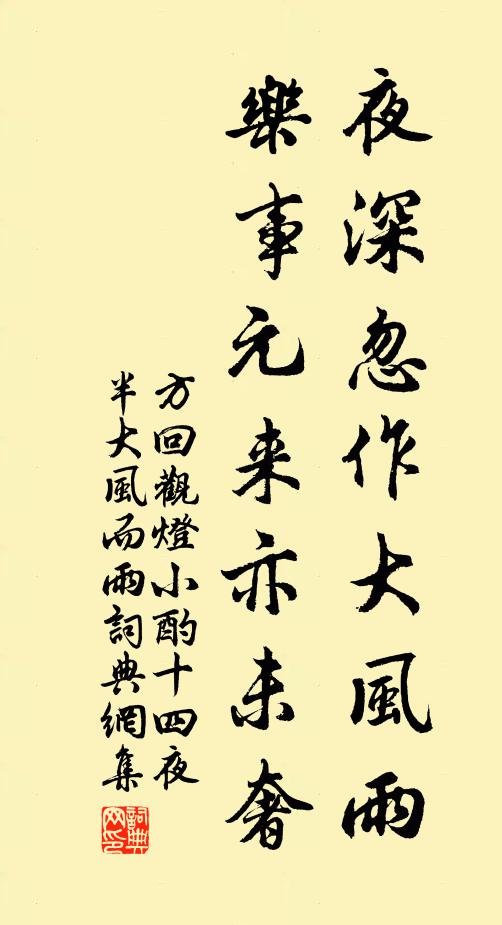 夜深忽作大風雨
樂事元来亦未奢
方回觀燈小酌十四夜
半大風而雨詞典網集
詞典
网印